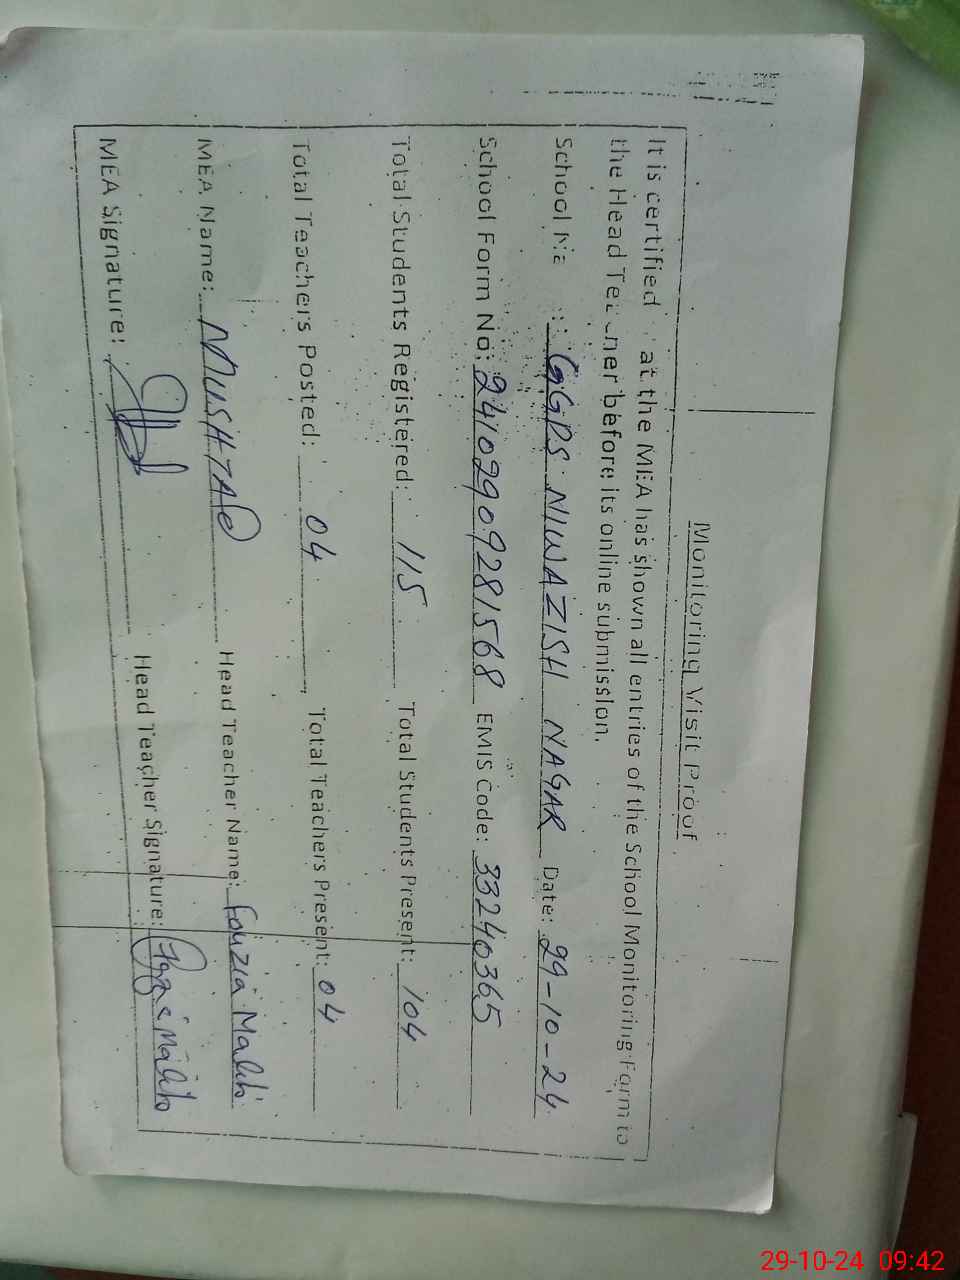 Monitoring Visit Proof
It is certified at the MEA has shown all entries of the School Monitoring Form to
the Head Teacher before its online submission.
School Na : GGPS NIWAZISH NAGAR Date: 29-10-24
School Form No: 24102909281568 EMIS Code: 33240365
Total Students Registered: 115 Total Students Present: 104
Total Teachers Posted: 04, Total Teachers Present: 04
MEA Name: MUSHTAQ Head Teacher Name: Fouzia Malik
MEA Signature: Head Teacher Signature:
29-10-24 09:42